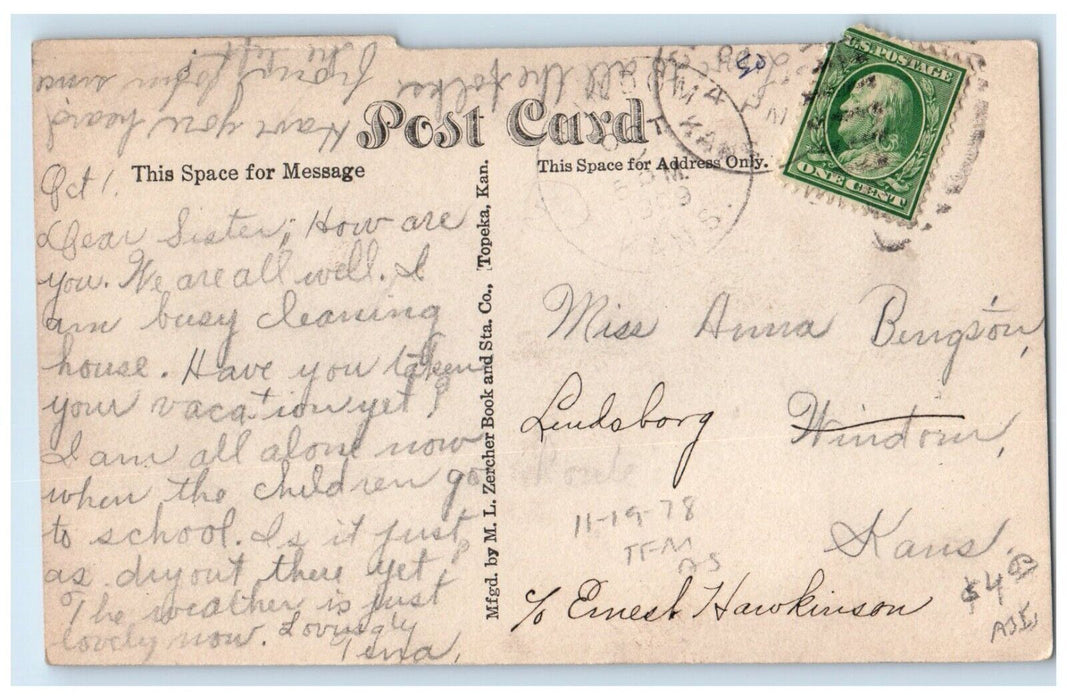 Post Card
This Space for Message
This Space for Address Only.
U.S. POSTAGE
ONE CENT
KANS.
Oct 1.
Dear Sister; How are
you. We are all well. I
am busy cleaning
house. Have you taken
your vacation yet?
I am all alone now
when the children go
to school. Is it just
as dry out there yet?
The weather is just
lovely now. Lovingly
Tena,
Have you heard
from John since
he left.
all the folks
Mfgd. by M. L. Zercher Book and Sta. Co., Topeka, Kan.
Miss Anna Bengson,
Lindsborg Windom,
Kans.
c/o Ernest Hawkinson
11-19-78
TFM
AS
$4